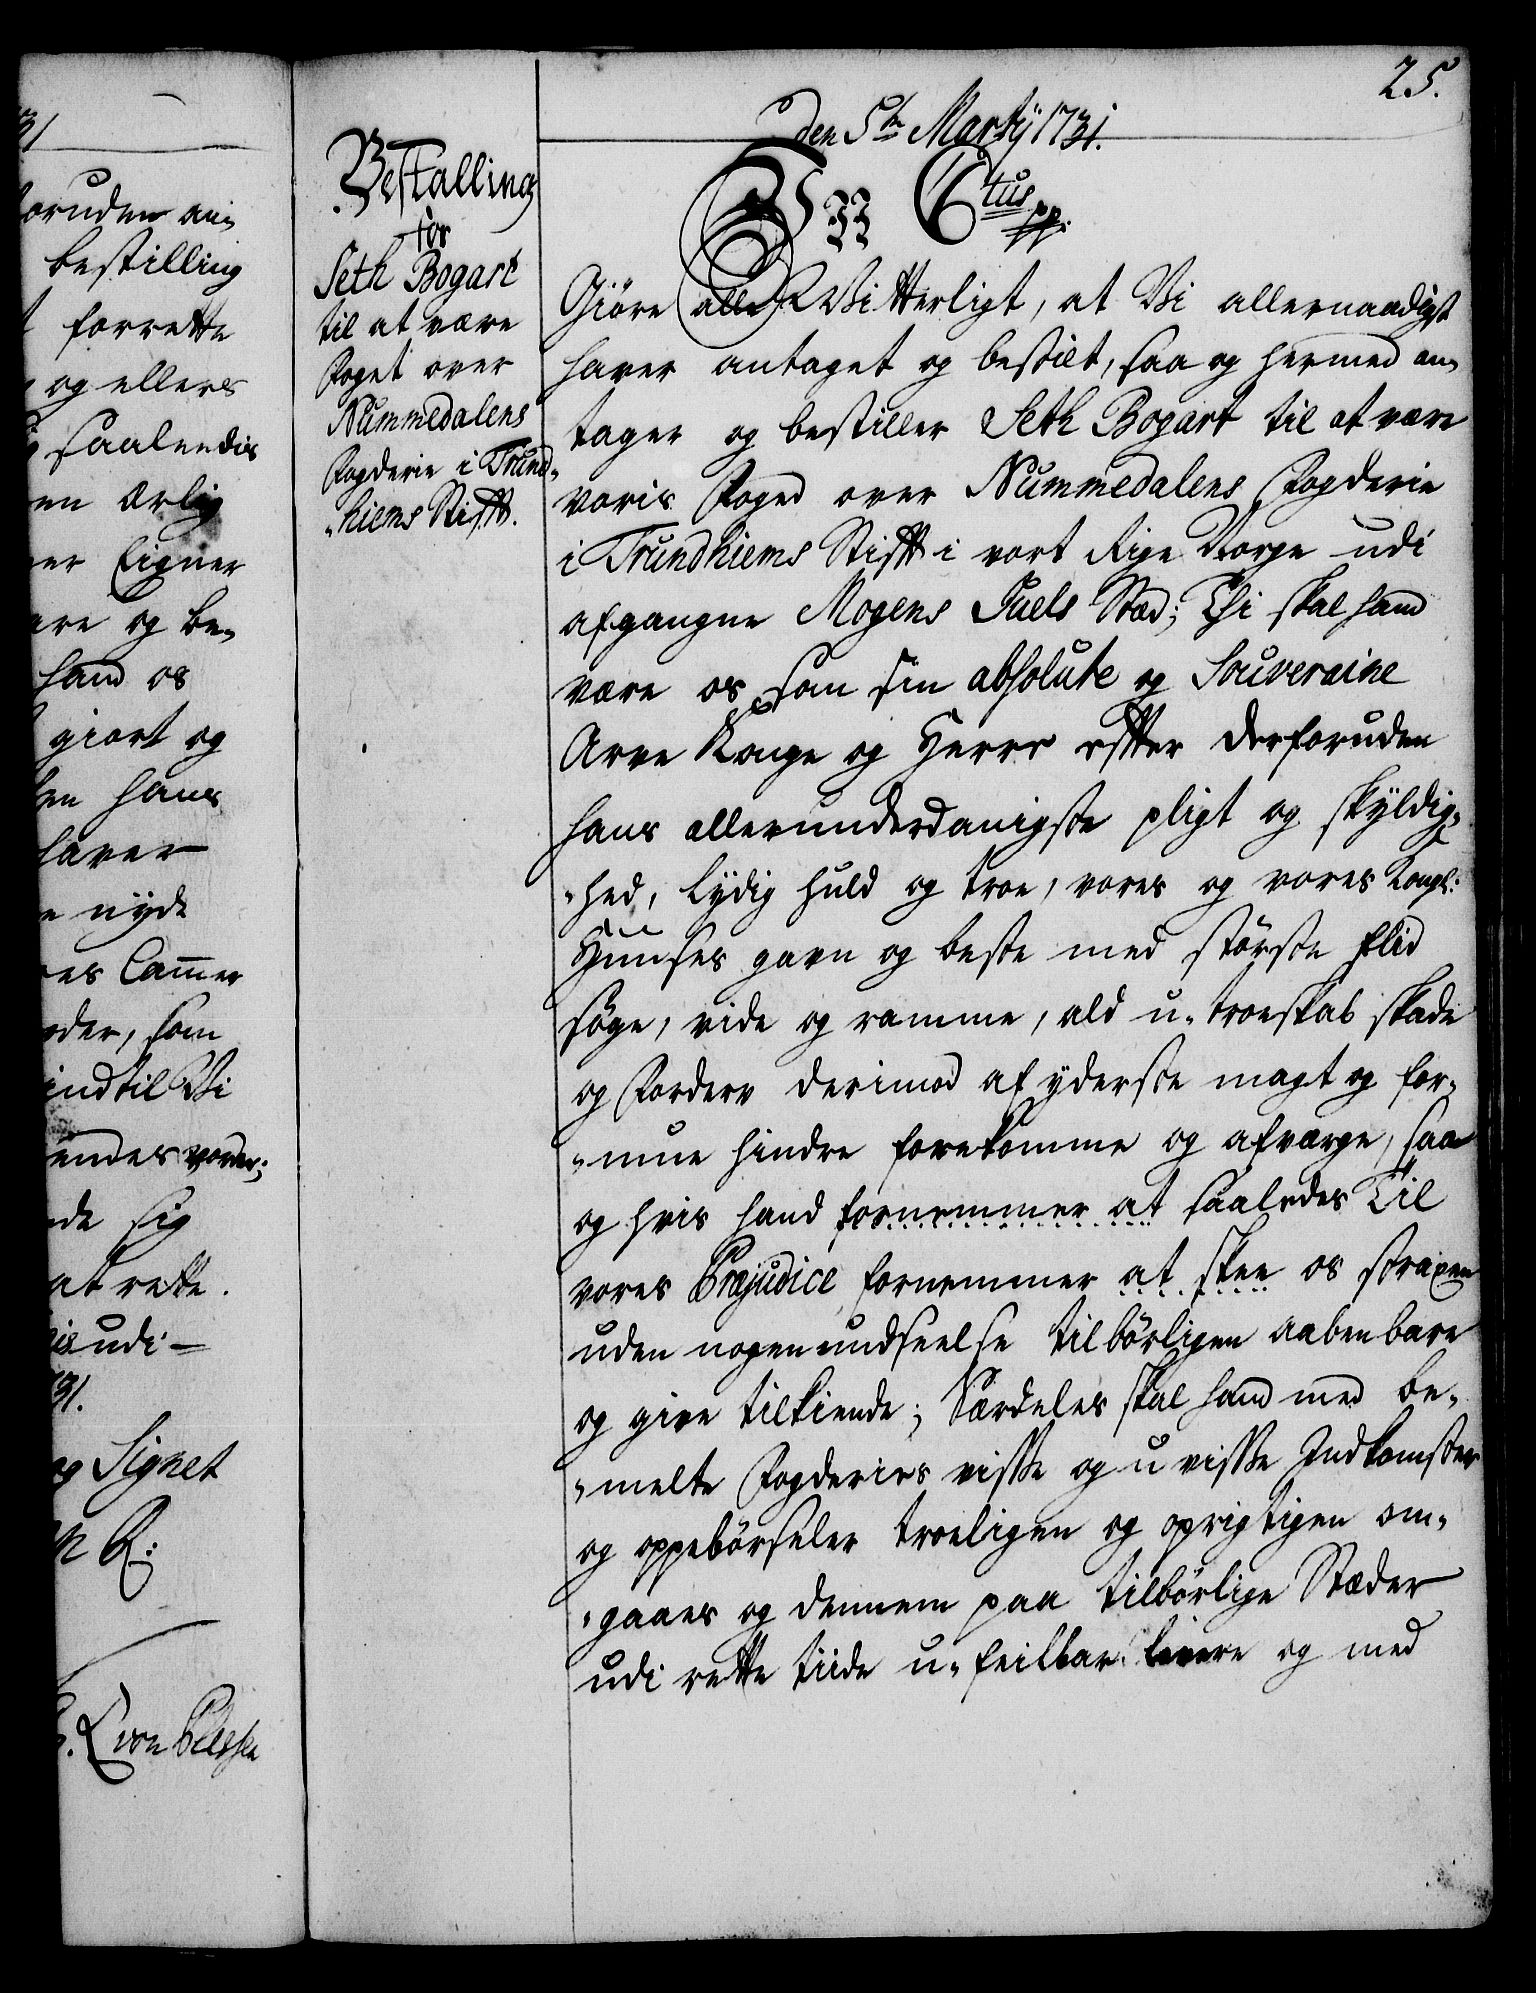 31
foruden an„
bestilling
forrette
og ellers
saaleedis
en ærlig
er Eigner
være og be„
hand os
giort og
en hans
haver
nyde
es Cammer
der, som
indtil Vi
endes vorder;
de sig
at rette.
is udi –
31.
og Signet
R:
C von Plessen
25.
den 5te Martij 1731.
Bestalling
for
Seth Bogart
til at være
Foget over
Nummedalens
Fogderie i Trund„
„hiems Stift.
Wii C6tus pp.
Giøre alle Witterligt, at Vi allernaadigst
haver antaget og bestilt, saa og hermed an„
tager og bestiller Seth Bogart til at være
voris Foged over Nummedalens Fogderie
i Trundhiems Stift i vort Rige Norge udi
afgangne Mogens Juels Stæd; Thi skal hand
være os som sin absolute og Souveraine
Arve Konge og Herre efter derforuden
hans allerunderdanigste pligt og skyldig„
„hed, lydig huld og troe, vores og vores Kongl:
Huuses gavn og beste med største flid
søge, vide og ramme, ald u„troeskab skade
og Forderv derimod af yderste magt og for„
„mue hindre forekomme og afværge, saa
og hvis hand fornemmer at saaledes Til
vores Præjudice fornemmer at skee os straxen
uden nogen undseelse tilbørligen aabenbare
og give tilkiende; Særdeles skal hand med be„
„melte Fogderies visse og uvisse Indkomster
og oppebørseler troeligen og oprigtigen om„
„gaaes og dennem paa tilbørlige Stæder
udi rette tiide u„feilbar levere og med